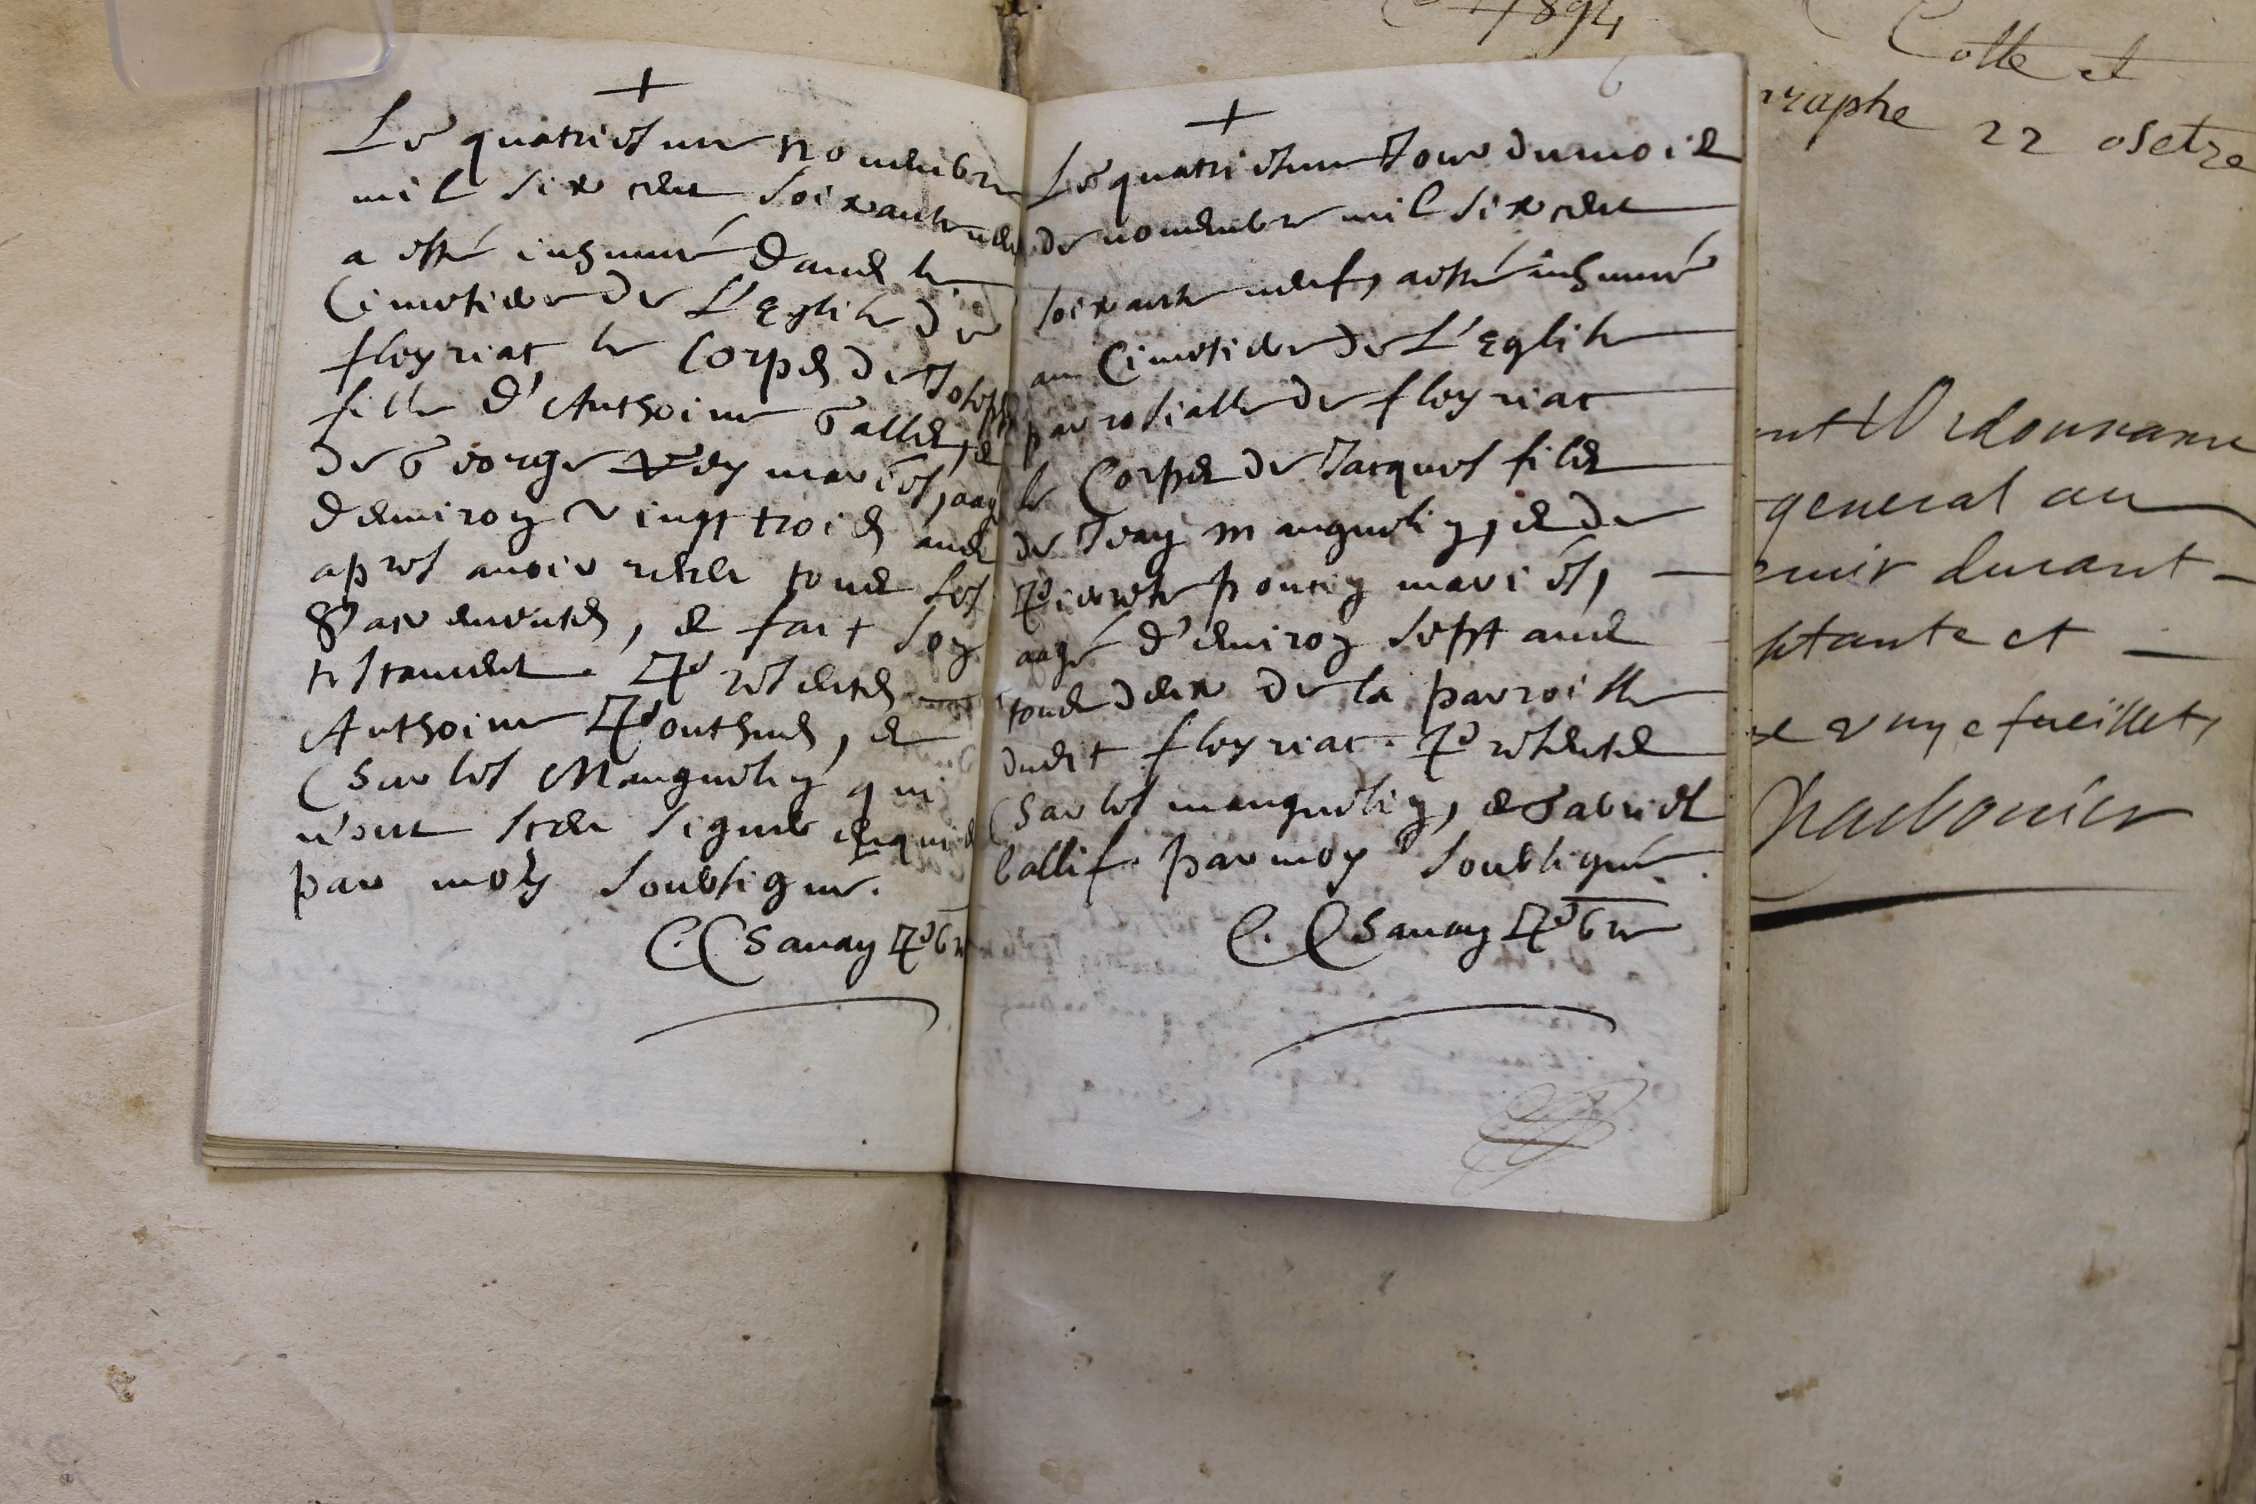 +
Le quatriesme novembre
mil six cent soixante neuf
a esté inhumé dans le
Cimetiere de L'Eglise de
fleyriat le corps de Joseph
fille d'Anthoine Gallet, et
de George Vey mariés, aag
d'environ vingt trois ans
apres avoir receu tous ses
Sacrements, et fait son
testament. Presents
Anthoine Pouthus, et
Charles Manguelin qui
n'ont sceu signer enquis
par moy soubsigné.
C. Chanay Pbre
6
+
Le quatriesme Jour du mois
de novembre mil six cent
soixante neuf, a esté inhumé
au Cimetiere de L'Eglise
parrosialle de fleyriat
le Corps de Jacques fils
de Jean manguelin, et de
Pierrette poncin mariés,
aagé d'environ sept ans
tous deux de la parroisse
dudit fleyriat. Presents
Charles manguelin, et Gabriel
ballif. par moy soubsigné.
C. Chanay Pbre
1894
Cotte et
raphe 22 oSetre
nt Ordonnance
general au
enir durant
ptante et
e unze fueillets
Charbonier